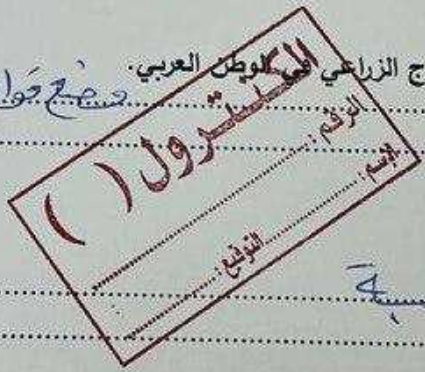 ج الزراعي في الوطن العربي.
وضع قوا
الكنترول ( )
الرقم:
الإسم:
التوقيع: